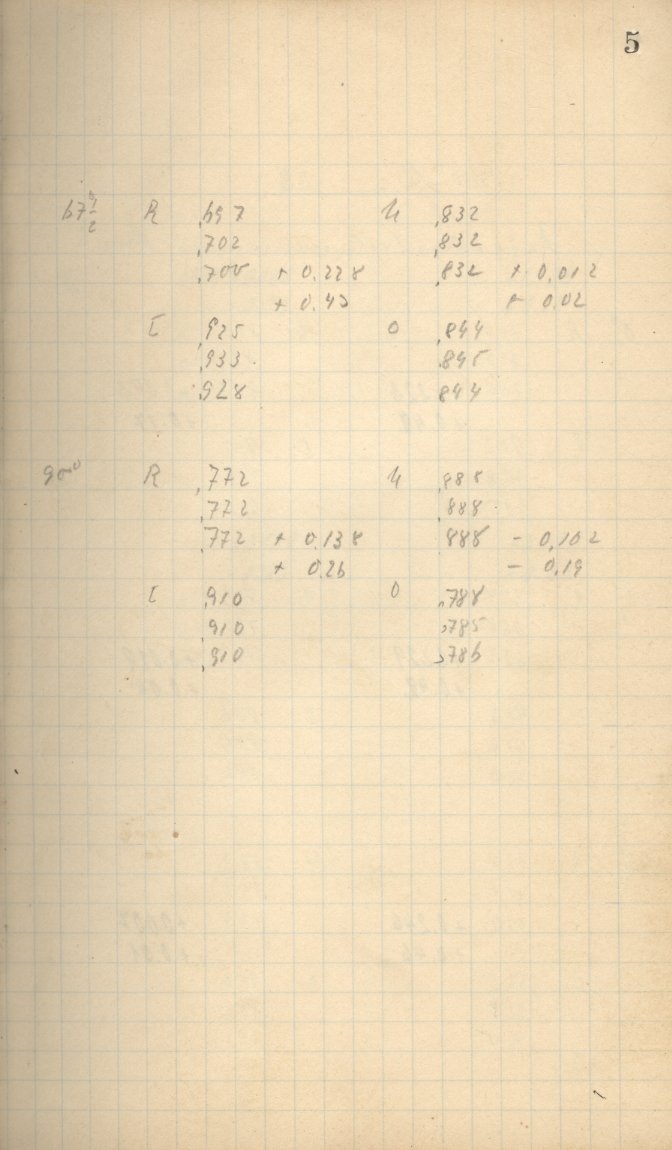 5
67½ R ,697 U ,832
,702 ,832
,700 + 0.228 ,832 + 0,012
+ 0.43 + 0.02
L ,925 O ,844
,933 ,845
,928 844
90° R ,772 U ,888
,772 ,888
,772 + 0.138 888 - 0,102
+ 0.26 - 0,19
L ,910 O ,788
,910 ,785
,910 ,786